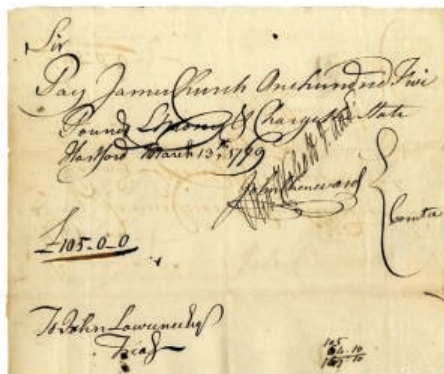 Sir
Pay James Church One hundred Five
Pounds L Money & Charge the State
Hartford March 13th 1779
John Chenevard
Comtee
£105-0-0
To John Lawrence Esqr
Treasr
105